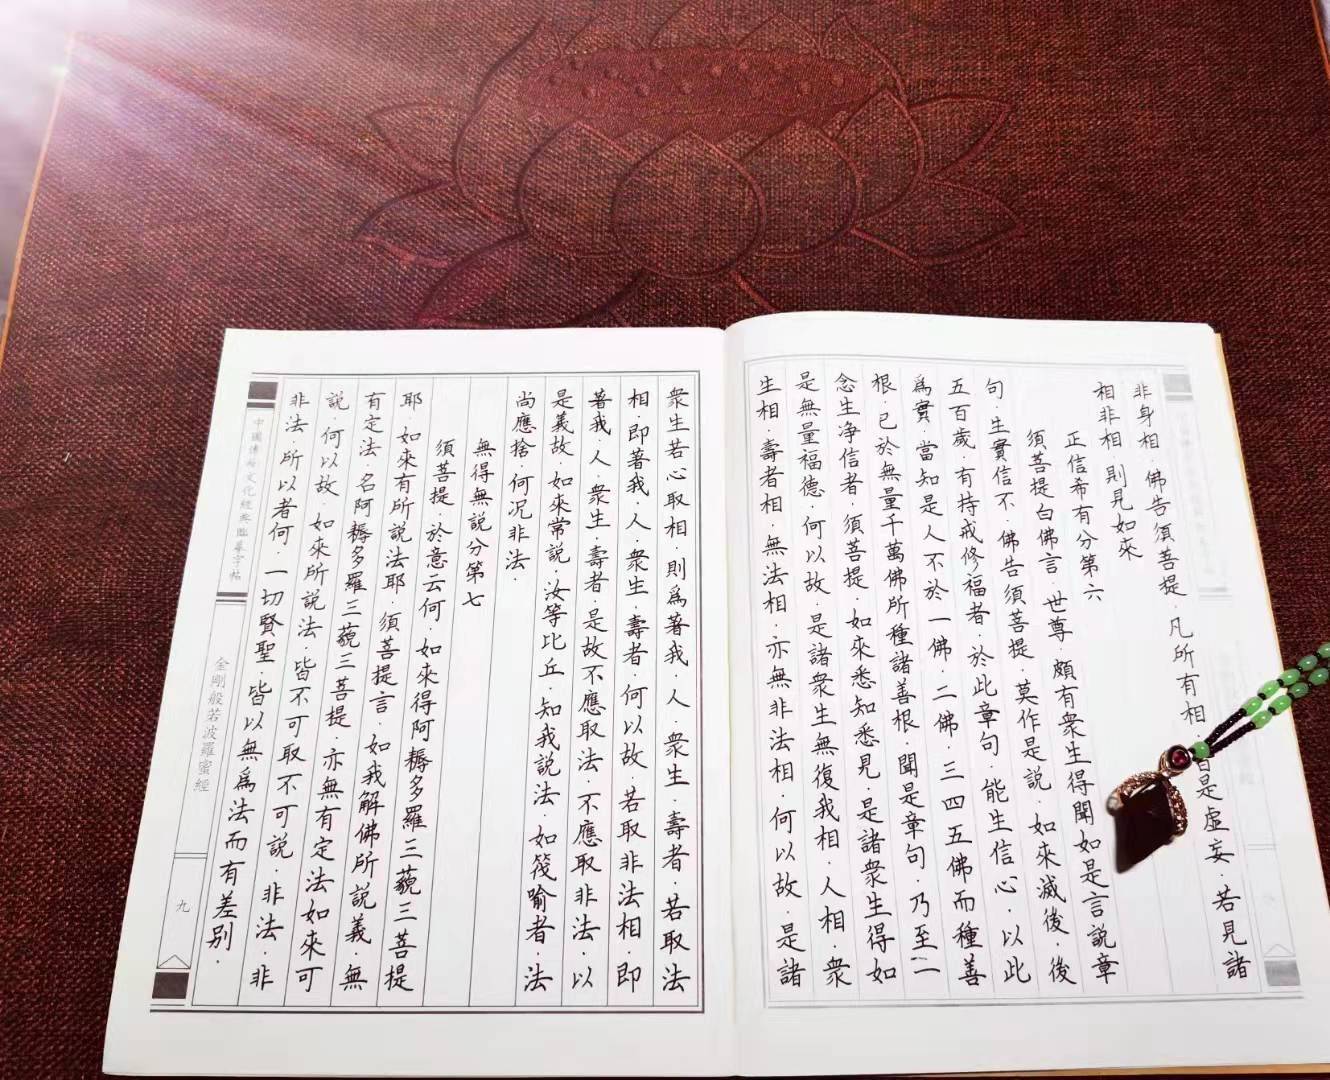 非身相．佛告須菩提．凡所有相．是虛妄．若見諸
相非相 則見如來
正信希有分第六
須菩提白佛言．世尊．頗有衆生得聞如是言説章
句．生實信不．佛告須菩提．莫作是説．如來滅後．後
五百歲．有持戒修福者．於此章句．能生信心．以此
爲實．當知是人不於一佛．二佛．三四五佛而種善
根．已於無量千萬佛所種諸善根．聞是章句．乃至一
念生净信者．須菩提．如來悉知悉見．是諸衆生得如
是無量福德．何以故．是諸衆生無復我相．人相．衆
生相．壽者相．無法相．亦無非法相．何以故．是諸
衆生若心取相．則爲著我．人．衆生．壽者．若取法
相．即著我．人．衆生．壽者．何以故．若取非法相．即
著我．人．衆生．壽者．是故不應取法．不應取非法．以
是義故．如來常説．汝等比丘．知我説法．如筏喻者．法
尚應捨．何況非法．
無得無説分第七
須菩提．於意云何．如來得阿耨多羅三藐三菩提
耶．如來有所説法耶．須菩提言．如我解佛所説義．無
有定法．名阿耨多羅三藐三菩提．亦無有定法如來可
説．何以故．如來所説法．皆不可取不可説．非法．非
非法．所以者何．一切賢聖．皆以無爲法而有差别．
中國傳統文化經典臨摹字帖
金剛般若波羅蜜經
九